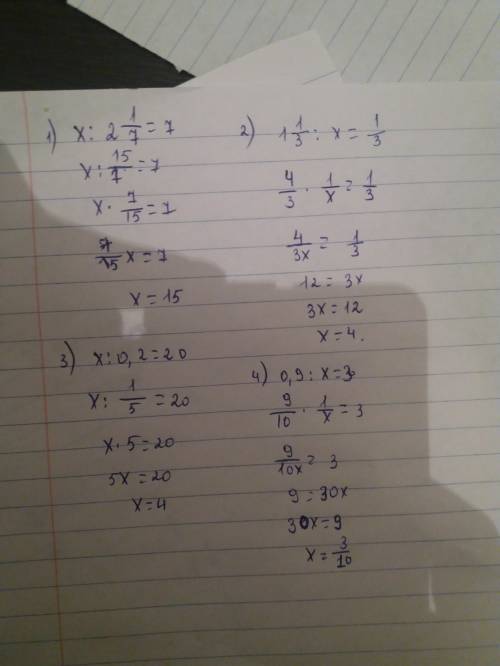 1) x : 2 1/7 = 7
x : 15/7 = 7
x · 7/15 = 7
7/15 x = 7
x = 15
2) 1 1/3 : x = 1/3
4/3 · 1/x = 1/3
4/3x = 1/3
12 = 3x
3x = 12
x = 4.
3) x : 0,2 = 20
x : 1/5 = 20
x · 5 = 20
5x = 20
x = 4
4) 0,9 : x = 3
9/10 · 1/x = 3
9/10x = 3
9 = 30x
30x = 9
x = 3/10